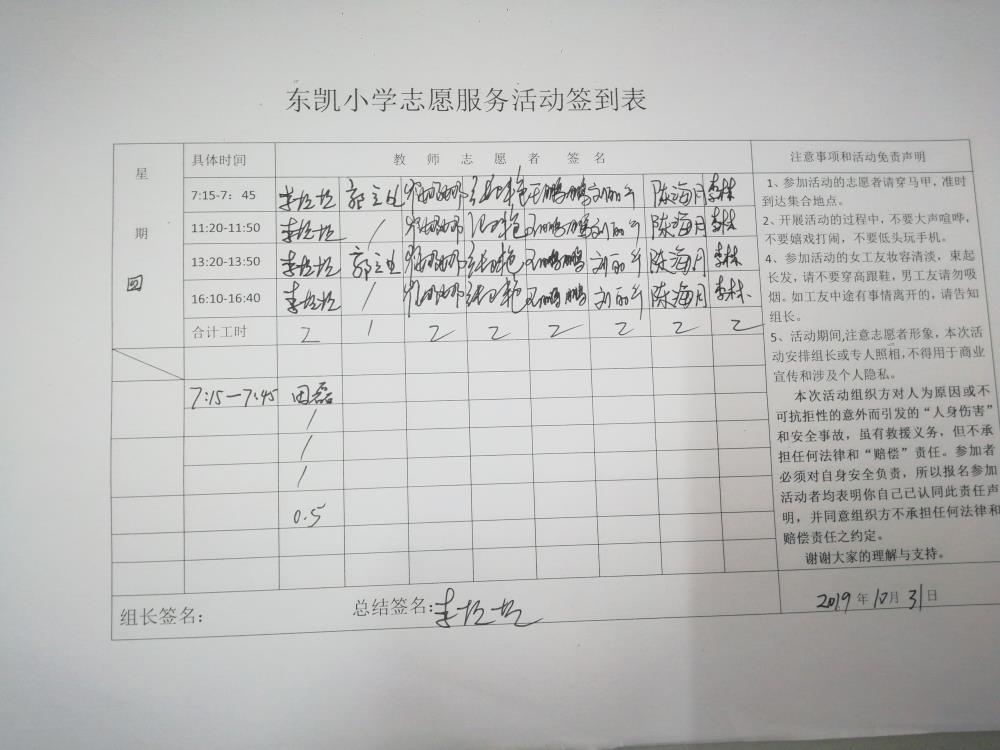 东凯小学志愿服务活动签到表
星期四
具体时间 教师志愿者签名 注意事项和活动免责声明
7:15-7：45 李垃垃 刘丽乡 陈海月 李林
11:20-11:50 李垃垃 / 刘丽乡 陈海月 李林
13:20-13:50 李垃垃 刘丽乡 陈海月 李林
16:10-16:40 李垃垃 / 刘丽乡 陈海月 李林
合计工时 2 1 2 2 2 2 2 2
7:15—7:45 田磊
/
/
/
0.5
1、参加活动的志愿者请穿马甲，准时
到达集合地点。
2、开展活动的过程中，不要大声喧哗，
不要嬉戏打闹，不要低头玩手机。
4、参加活动的女工友妆容清淡，束起
长发，请不要穿高跟鞋，男工友请勿吸
烟。如工友中途有事情离开的，请告知
组长。
5、活动期间，注意志愿者形象，本次活
动安排组长或专人照相，不得用于商业
宣传和涉及个人隐私。
本次活动组织方对人为原因或不
可抗拒性的意外而引发的“人身伤害”
和安全事故，虽有救援义务，但不承
担任何法律和“赔偿”责任。参加者
必须对自身安全负责，所以报名参加
活动者均表明你自己已认同此责任声
明，并同意组织方不承担任何法律和
赔偿责任之约定。
谢谢大家的理解与支持。
组长签名： 总结签名：李垃垃 2019年10月31日